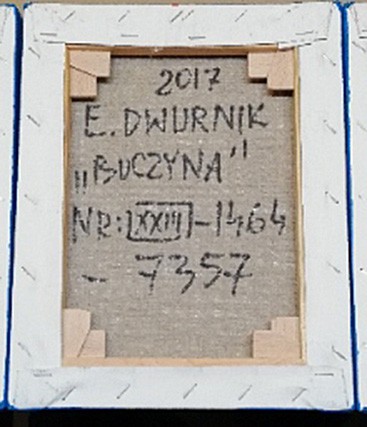 2017
E. DWURNIK
„BUCZYNA"
NR: XXIII-1464
- 7357